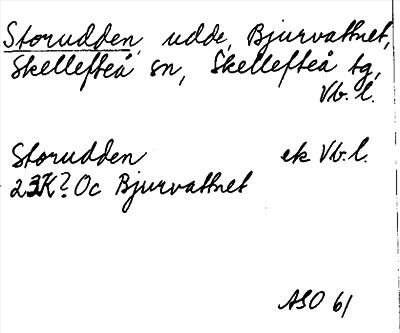 Storudden, udde, Bjurvattnet,
Skellefteå sn, Skellefteå tg,
Vb. l.
Storudden ek Vb. l.
23K? Oc Bjurvattnet
ASO 61